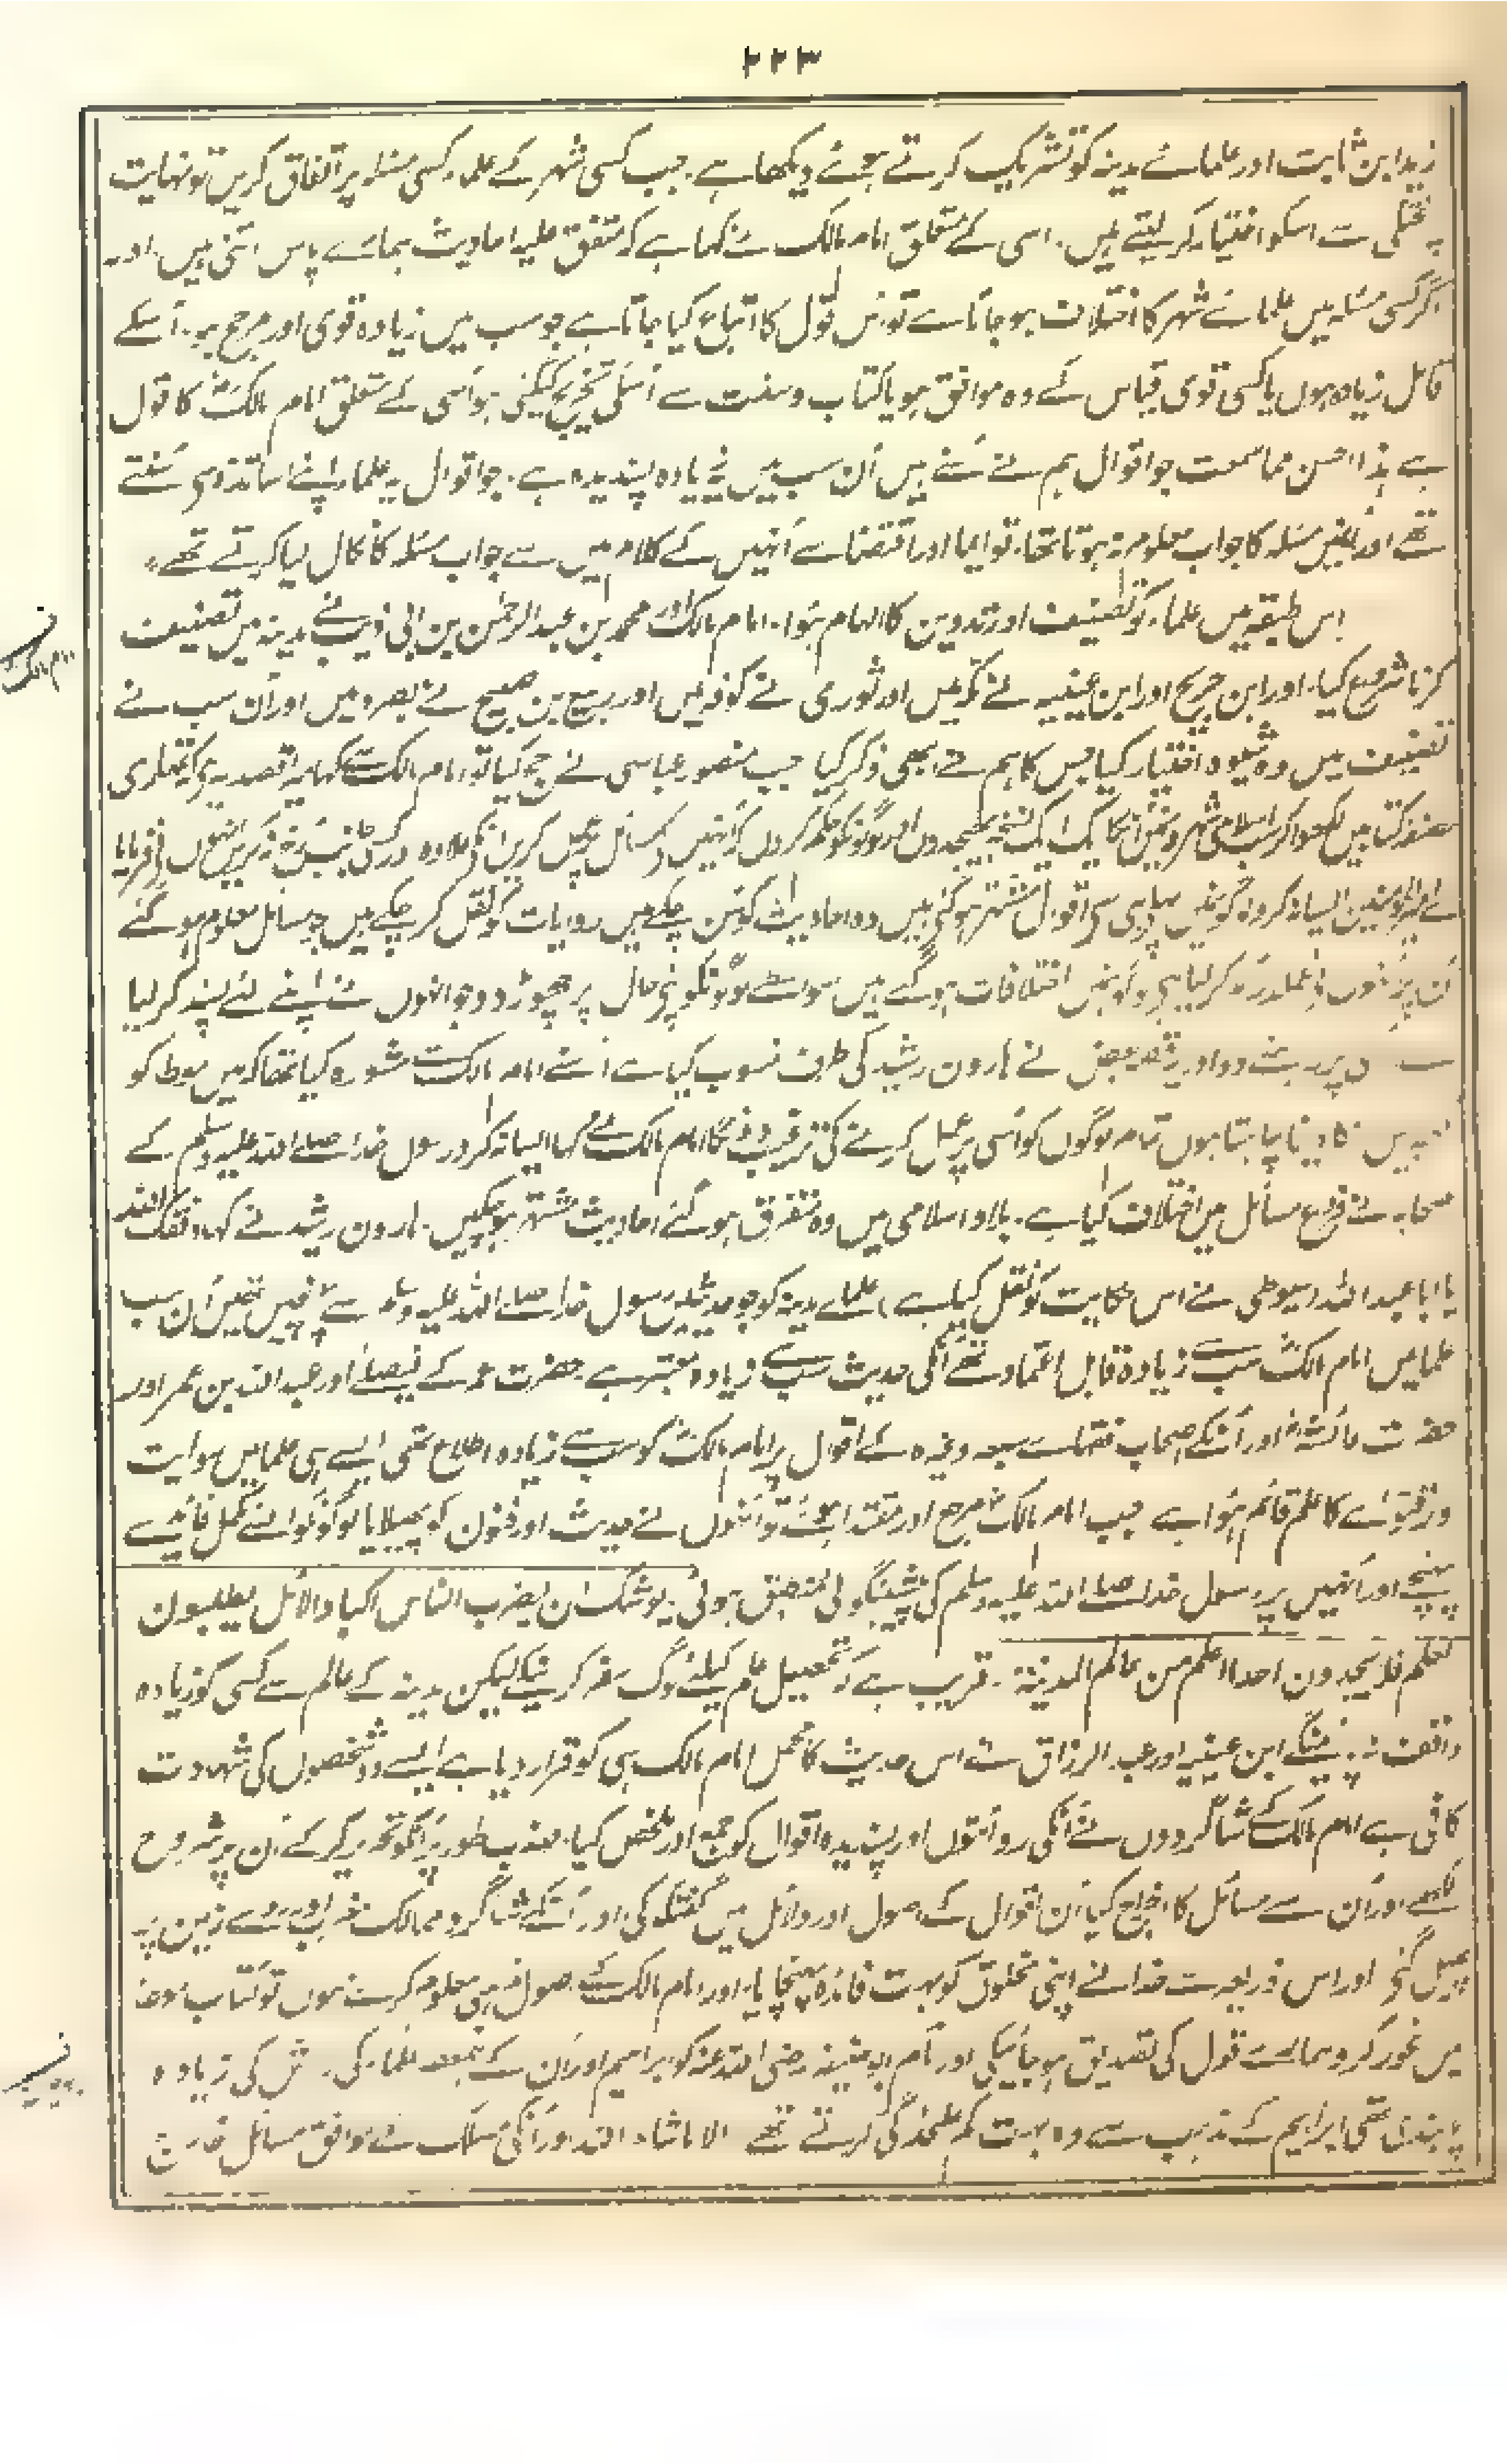 ۲۲۳
زید ابن ثابت اور علمائے مدینہ کو تشریک کرتے ہوئے دیکھا ہے۔ جب کسی شہر کے علماء کسی مسئلہ پر اتفاق کریں تو نہایت
پختگی سے اسکو اختیار کر لیتے ہیں۔ اسی کے متعلق امام مالک نے کہا ہے کہ متفق علیہ احادیث ہمارے پاس اتنی ہیں اور
اگر کسی مسئلہ میں علمائے شہر کا اختلاف ہو جاتا ہے تو قول کا اتباع کیا جاتا ہے جو سب میں زیادہ قوی اور مرجح ہو۔ اسکے
قائل زیادہ ہوں یا کسی قوی قیاس کے وہ موافق ہو یا کتاب و سنت سے اسکی تخریج کیگئی ہو اسی کے متعلق امام مالکؒ کا قول
ہے ہذا احسن ما سمعت جو اقوال ہم نے سنے ہیں ان سب میں زیادہ پسندیدہ ہے۔ جو اقوال یہ علماء اپنے اساتذہ سی سنتے
تھے اور انمیں مسئلہ کا جواب معلوم نہ ہوتا تھا۔ تو ایما اور اقتضا سے انہیں کے کلام میں سے جواب مسئلہ کا نکال لیا کرتے تھے۔
اس طبقہ میں علماء کو تصنیف اور تدوین کا الہام ہوا۔ امام مالکؒ اور محمد بن عبد الرحمٰن بن ابی ذیب نے مدینہ میں تصنیف
کرنا شروع کیا۔ اور ابن جریج اور ابن عیینہ نے مکہ میں اور ثوری نے کوفہ میں اور ربیع بن صبیح نے بصرہ میں اور ان سب نے
تصنیف میں وہ شیوہ اختیار کیا جس کا ہم نے ابھی ذکر کیا جب منصور عباسی نے حج کیا تو امام مالک سے کہا میرا قصد یہ ہے کہ تمہاری
مصنفہ کتابیں لکھوا کر سب اسلامی شہروں میں انکا ایک ایک نسخہ بھیجدوں اور لوگونکو حکم کردوں کہ انہیں مسائل پر عمل کریں انکے علاوہ
اے امیر المومنین ایسا نہ کرو لوگونمیں پہلے ہی سے اقوال مشتہر ہو گئے ہیں وہ احادیث کو سن چکے ہیں روایات کو نقل کر چکے ہیں جو مسائل معلوم ہو گئے
ان پر انہوں نے عملدرآمد کر لیا ہی اختلافات ہو گئے ہیں لوگونکو حال پر چھوڑ دو جو انہوں نے اپنے لئے پسند کر لیا
پر رہنے دو اور یہ قصہ بعض نے ہارون رشید کی طرف منسوب کیا ہے اسنے امام مالک سے مشورہ کیا تھا کہ میں موطا کو
دینا چاہتا ہوں تمام لوگوں کو اسی پر عمل کرنے کی ترغیب دونگا امام مالک نے کہا ایسا نہ کرو رسول خدا صلے اللہ علیہ وسلم کے
صحابہ نے فروع مسائل میں اختلاف کیا ہے۔ بلاد اسلامی میں وہ متفرق ہو گئے احادیث مشتہر ہو چکیں۔ ہارون رشید نے کہا وفقک اللہ
یا ابا عبد اللہ (سیوطی نے اس حکایت کو نقل کیا ہے) علمائے مدینہ کو جو حدیثیں رسول خدا صلے اللہ علیہ وسلم سے پہنچیں تھیں ان سب
علما میں امام مالکؒ سب سے زیادہ قابل اعتماد تھے انکی حدیث سب سے زیادہ معتبر ہے حضرت عمر کے فیصلے اور عبد اللہ بن عمر اور
حضرت عائشہؓ اور انکے اصحاب فقہائے سبعہ وغیرہ کے اقوال پر امام مالکؒ کو سب سے زیادہ اطلاع تھی ایسے ہی علما میں روایت
اور فتوائے کا علم قائم ہوا ہے جب امام مالکؒ مرجع اور مقتدا ہوئے تو انہوں نے حدیث اور فنون کو پھیلایا لوگونکو اپنے مکمل فائدے
پہنچے اور انہیں پر رسول خدا صلے اللہ علیہ وسلم کی پیشینگوئی منطبق ہوئی۔ یوشک ان یضرب الناس اکباد الابل یطلبون
العلم فلا یجدون احدا اعلم من عالم المدینۃ۔ قریب ہے کہ تحصیل علم کیلئے لوگ سفر کرینگے لیکن مدینہ کے عالم سے کسی کو زیادہ
واقف نہ پائینگے ابن عیینہ اور عبد الرزاق نے اس حدیث کا محمل امام مالک ہی کو قرار دیا ہے ایسے دو شخصوں کی شہادت
کافی ہے امام مالک کے شاگردوں نے انکی روایتوں اور پسندیدہ اقوال کو جمع اور ملخص کیا۔ مہذب طور پر انکو تحریر کرکے ان پر شروح
لکھے اور ان سے مسائل کا اخراج کیا ان اقوال کے اصول اور دلائل میں گفتگو کی اور انکے شاگرد ممالک مغرب اور روے زمین پر
پھیل گئے اور اس ذریعہ سے خدا نے اپنی مخلوق کو بہت فائدہ پہنچایا۔ اور امام مالک کے اصول مذہب معلوم کرنے ہوں تو کتاب موطا
میں غور کرو ہمارے قول کی تصدیق ہو جائیگی اور امام ابو حنیفہ رضی اللہ عنہ کو ابراہیم اور ان کے ہمعصر علماء کی روش کی زیادہ
پابندی تھی ابراہیم کے مذہب سے وہ بہت کم علیحدگی کرتے تھے الا ماشاء اللہ اور انکی مسلک کے موافق مسائل